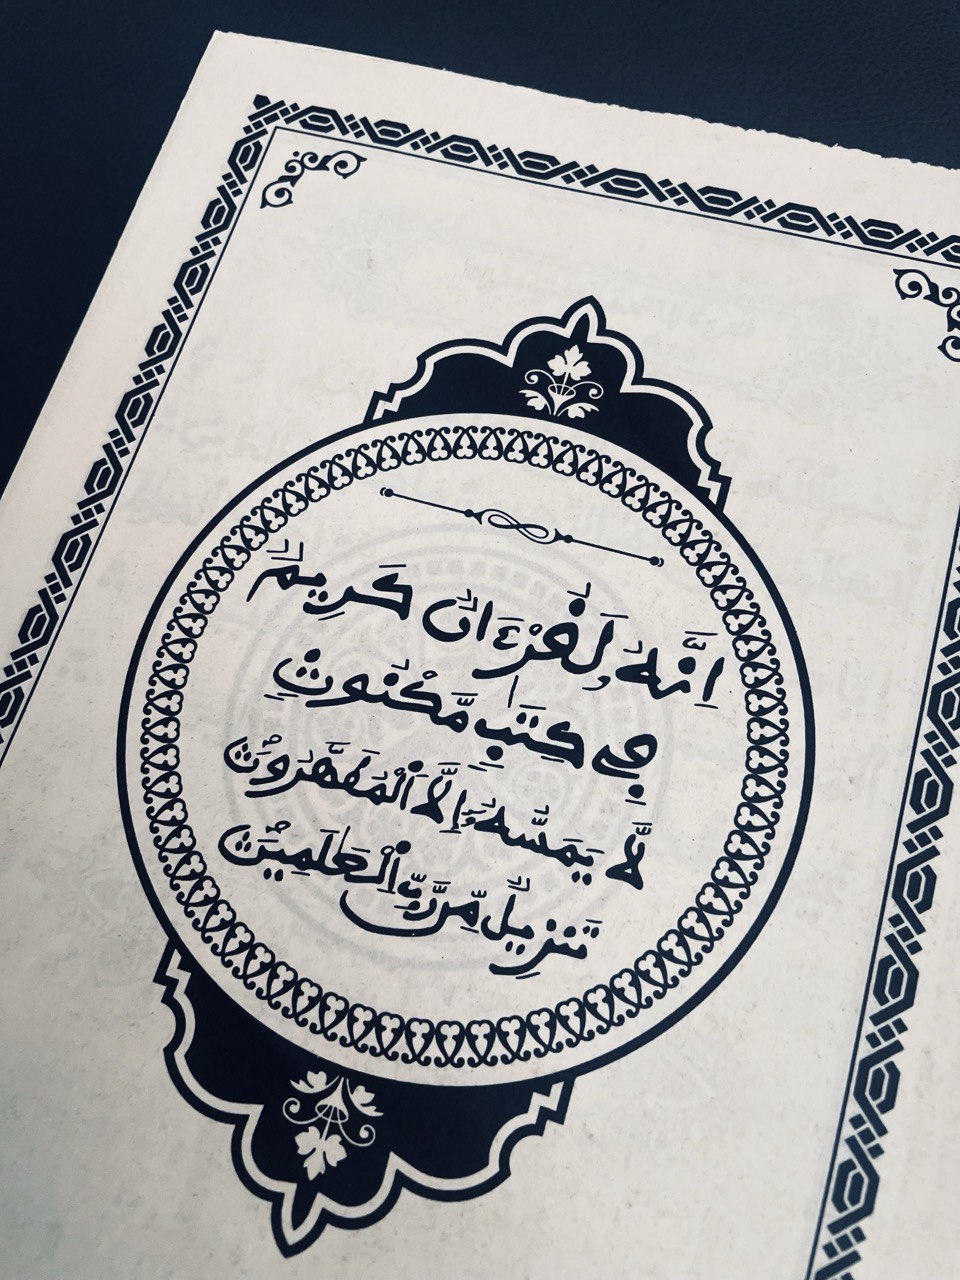 إِنَّهُۥ لَقُرْءَانٌ كَرِيمٌ
فِي كِتَٰبٍ مَّكْنُونٍ
لَّا يَمَسُّهُۥٓ إِلَّا اَ۬لْمُطَهَّرُونَ
تَنزِيلٌ مِّن رَّبِّ اِ۬لْعَٰلَمِينَ